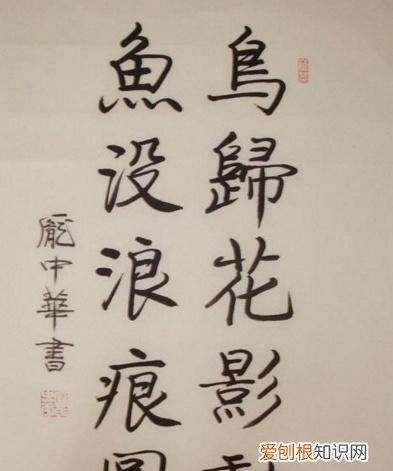 鳥歸花影
魚没浪痕
龐中華書
爱刨根知识网
www.baopaogen.com